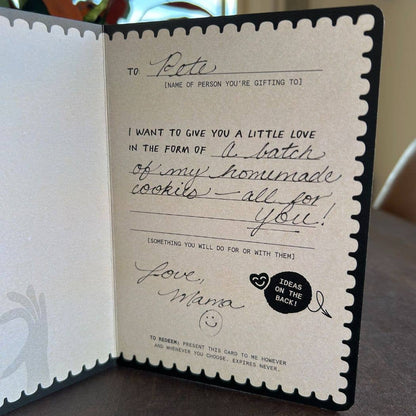 TO: Pete
[NAME OF PERSON YOU'RE GIFTING TO]
I WANT TO GIVE YOU A LITTLE LOVE
IN THE FORM OF A batch
of my homemade
cookies – all for
you!
[SOMETHING YOU WILL DO FOR OR WITH THEM]
Love,
Mama
IDEAS
ON THE
BACK!
TO REDEEM: PRESENT THIS CARD TO ME HOWEVER
AND WHENEVER YOU CHOOSE. EXPIRES NEVER.